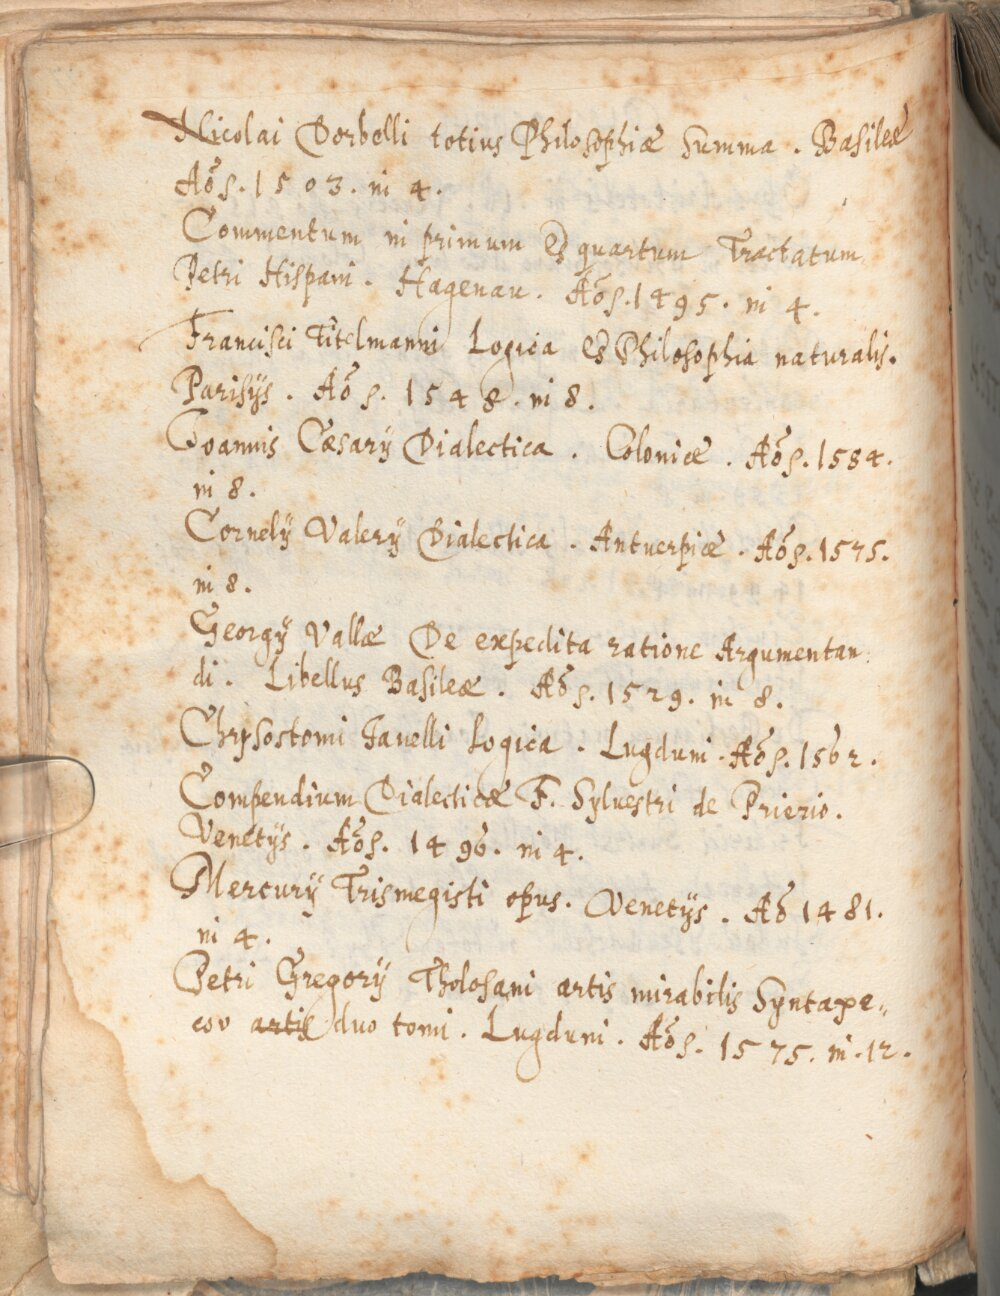 Nicolai Dorbelli totius Philosophiæ Summa. Basileæ
Aõs. 1503. in 4.
Commentum in primum & quartum Tractatum
Petri Hispani. Hagenau. Aõs. 1495. in 4.
Francisci Titelmanni Logica & Philosophia naturalis.
Parisÿs. Aõs. 1548. in 8.
Joannis Cæsarÿ Dialectica. Coloniæ. Aõs. 1554.
in 8.
Cornelÿ Valerÿ Dialectica. Antuerpiæ. Aõs. 1575.
in 8.
Georgÿ Vallæ De expedita ratione Argumentan
di. Libellus Basileæ. Aõs. 1529. in 8.
Chrysostomi Javelli Logica. Lugduni. Aõs. 1562.
Compendium Dialecticæ F. Sylvestri de Prierio.
Venetÿs. Aõs. 1496. in 4.
Mercurÿ Trismegisti opus. Venetÿs. Aõ 1481.
in 4.
Petri Gregorÿ Tholosani artis mirabilis Syntaxe„
eov artis duo tomi. Lugduni. Aõs. 1575. in. 12.